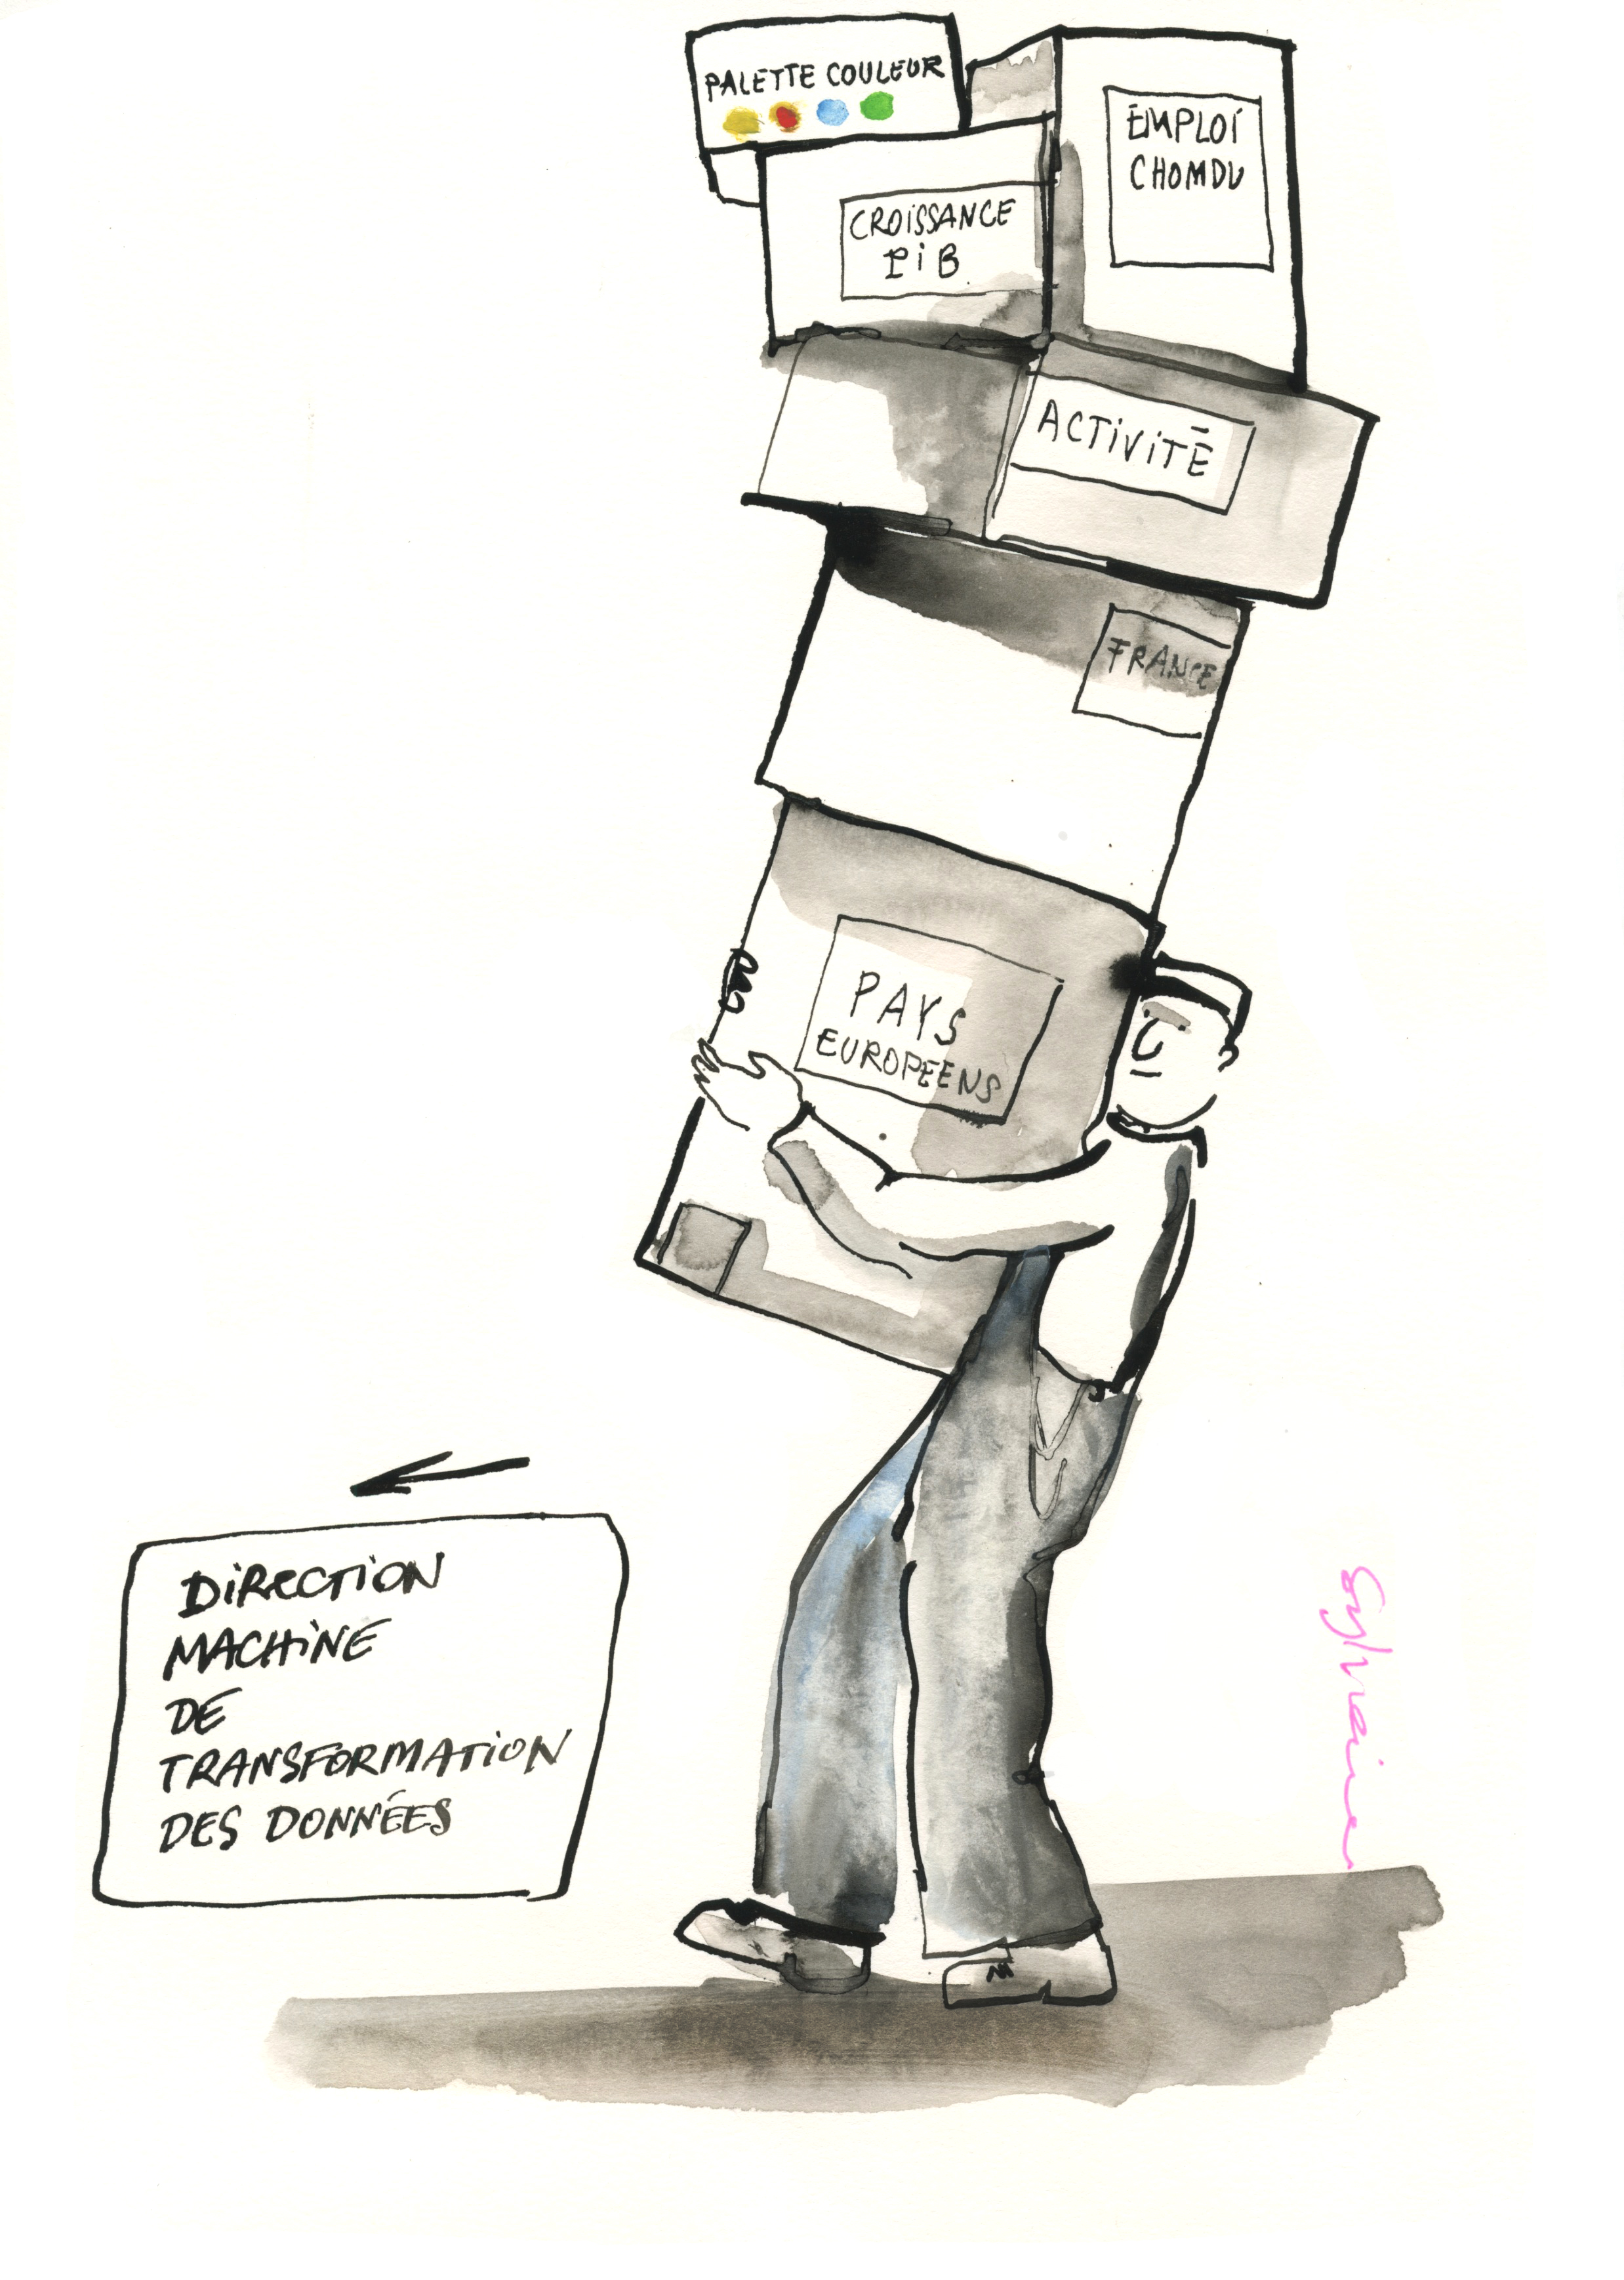 PALETTE COULEUR
EMPLOI
CHOMDU
CROISSANCE
PIB
ACTIVITÉ
FRANCE
PAYS
EUROPEENS
DIRECTION
MACHINE
DE
TRANSFORMATION
DES DONNÉES
Sylvaine